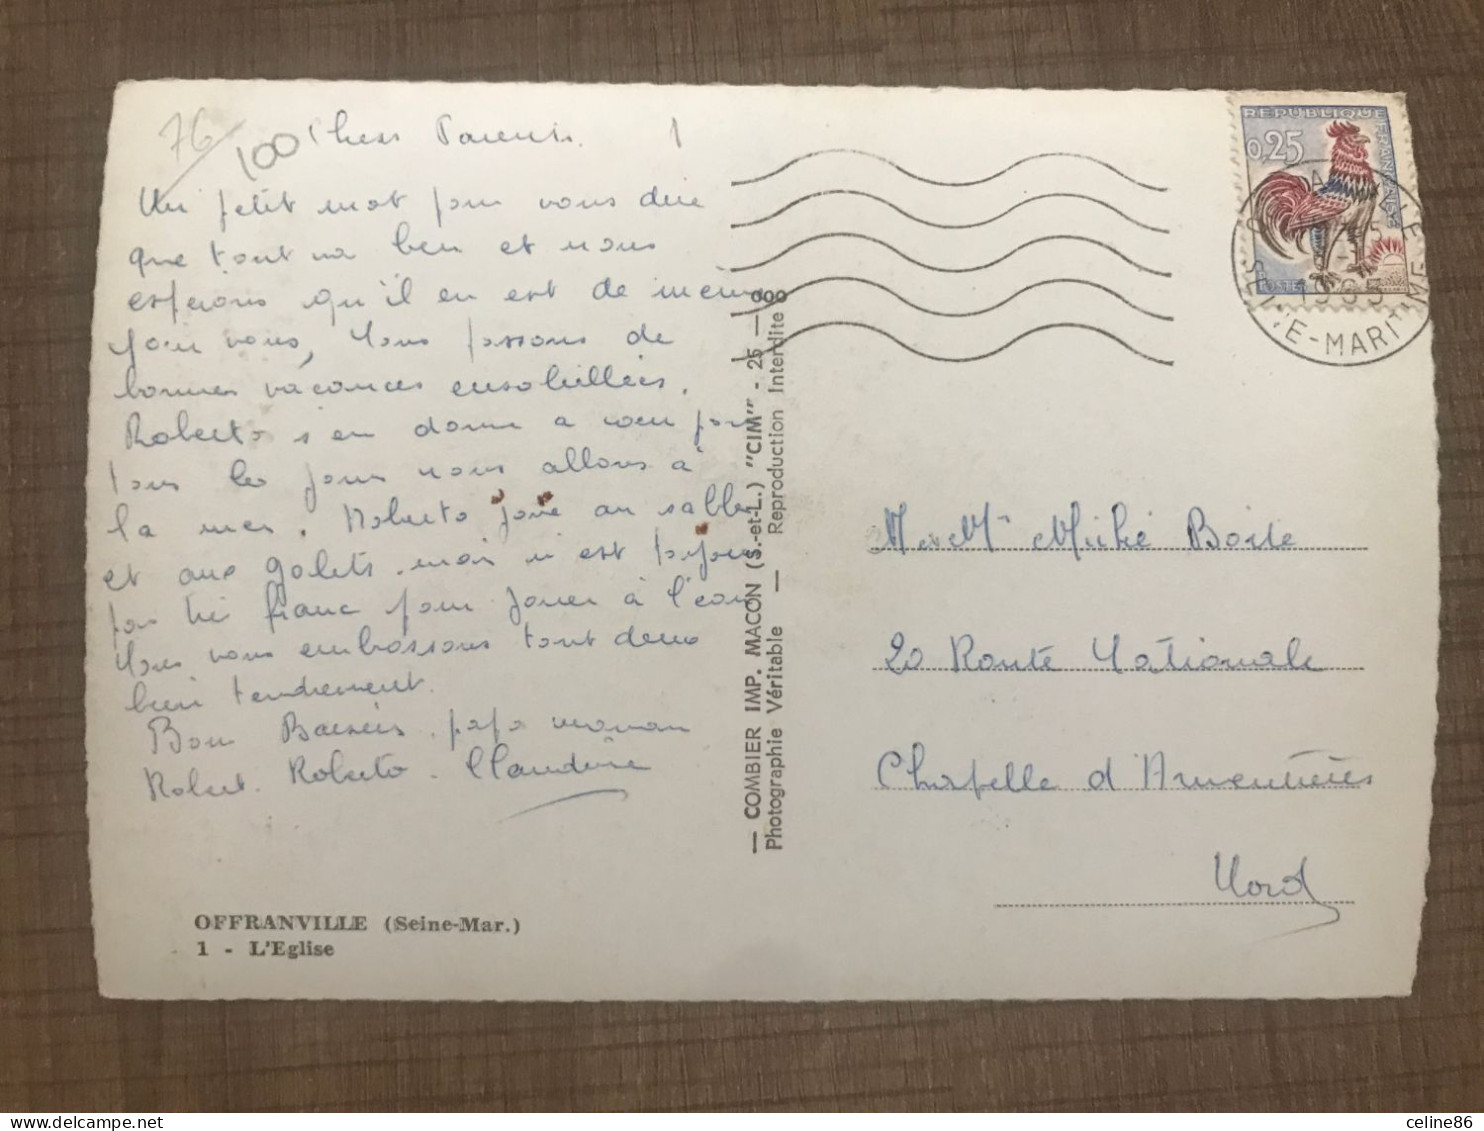 76
100
Chers Parents. 1
Un petit mot pour vous dire
que tout va bien et nous
espérons qu'il en est de même
pour vous, Nous passons de
bonnes vacances ensoleillées.
Roberto s'en donne a coeur joie
tous les jours nous allons à
la mer. Roberto joue au sable
et aux galets. mais n'est
pas très franc pour jouer à l'eau
Nous vous embrassons tout deux
bien tendrement.
Bons Baisers. papa maman
Robert. Roberto. Claudine
OFFRANVILLE (Seine-Mar.)
1 - L'Eglise
— COMBIER IMP. MACON (S.-et-L.) "CIM" - 25 — 000
Photographie Véritable — Reproduction Interdite
REPUBLIQUE FRANÇAISE
0,25
POSTES
OFFRANVILLE
1963
SEINE-MARITIME
M et Me Miché Boite
20 Route Nationale
Chapelle d'Armentières
Nord
celine86